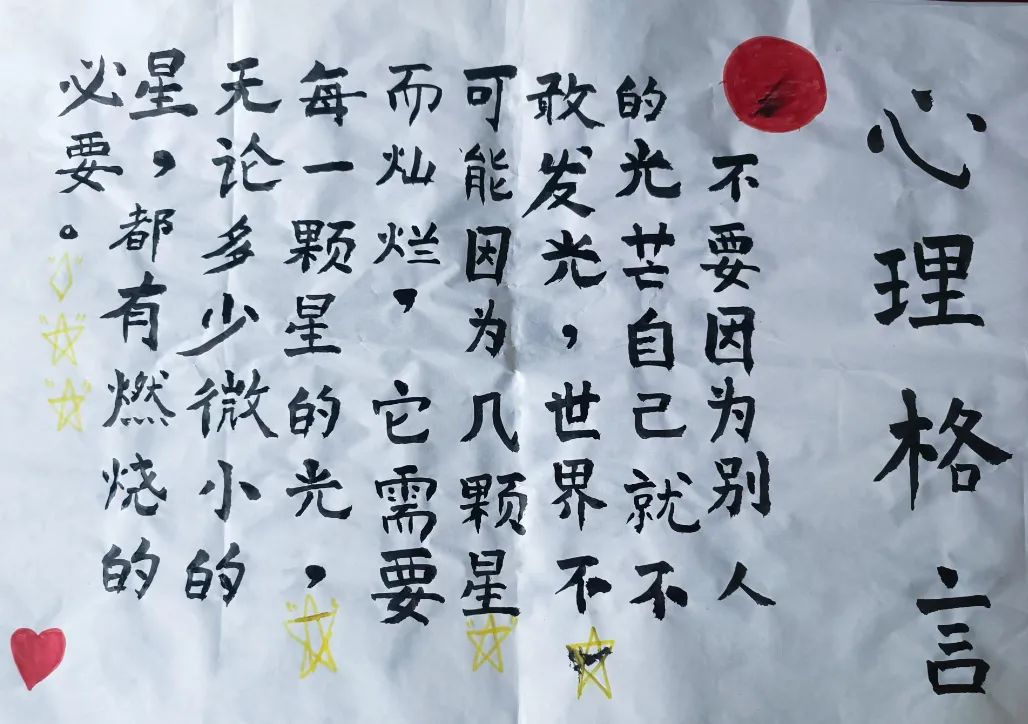 心理格言
不要因为别人
的光芒自己就不
敢发光，世界不
可能因为几颗星
而灿烂，它需要
每一颗星的光，
无论多少微小的
星，都有燃烧的
必要。